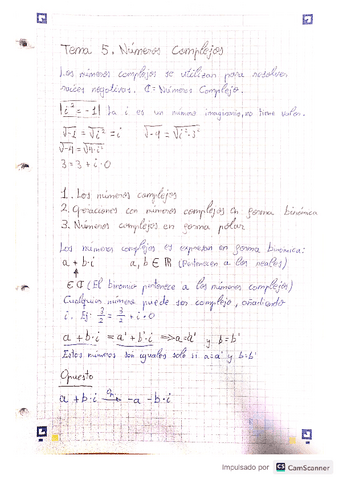 Tema 5. Números Complejos
Los números complejos se utilizan para resolver
raíces negativas. ℂ = Números Complejo.
i² = -1 La i es un número imaginario, no tiene valor.
√-1 = √i² = i √-9 = √i²·3²
√-9 = √9·i²
3 = 3 + i·0
1. Los números complejos
2. Operaciones con números complejos en forma binómica
3. Números complejos en forma polar
Los números complejos se expresan en forma binómica:
a + b·i a, b ∈ ℝ (Pertenecen a los reales)
∈ ℂ (El binomio pertenece a los números complejos)
Cualquier número puede ser complejo, añadiendo
i. Ej: 3/2 = 3/2 + i·0
a + b·i = a' + b'·i => a = a' y b = b'
Estos números son iguales solo si a = a' y b = b'
Opuesto
a + b·i → -a - b·i
Impulsado por CS CamScanner